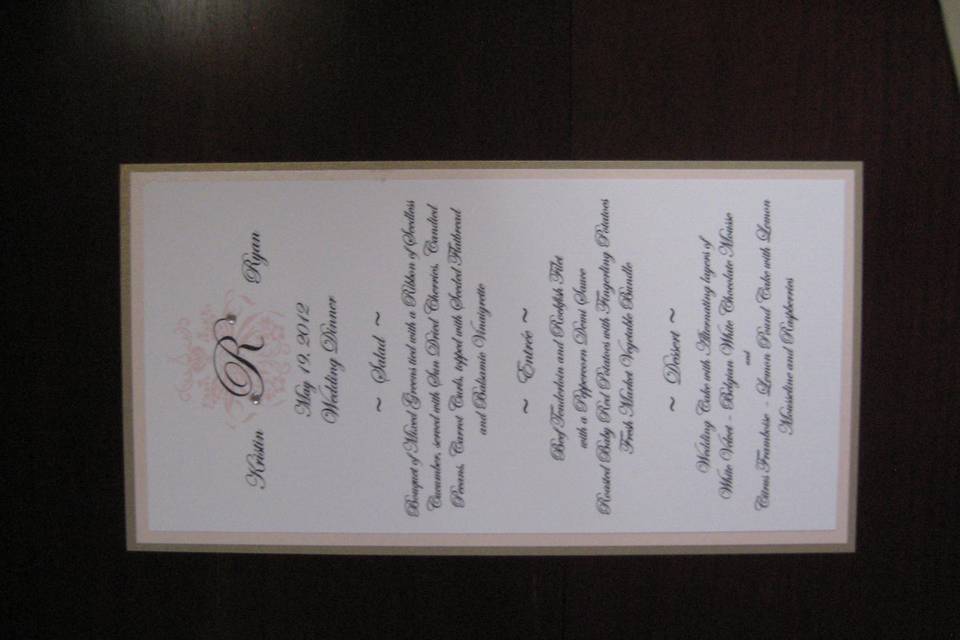 R
Kristin Ryan
May 19, 2012
Wedding Dinner
~ Salad ~
Bouquet of Mixed Greens tied with a Ribbon of Seedless
Cucumber, served with Sun Dried Cherries, Candied
Pecans, Carrot Curls, topped with Seeded Flatbread
and Balsamic Vinaigrette
~ Entrée ~
Beef Tenderloin and Rockfish Filet
with a Peppercorn Demi Sauce
Roasted Baby Red Potatoes with Fingerling Potatoes
Fresh Market Vegetable Bundle
~ Dessert ~
Wedding Cake with Alternating layers of
White Velvet - Belgian White Chocolate Mousse
and
Citrus Framboise - Lemon Pound Cake with Lemon
Mousseline and Raspberries